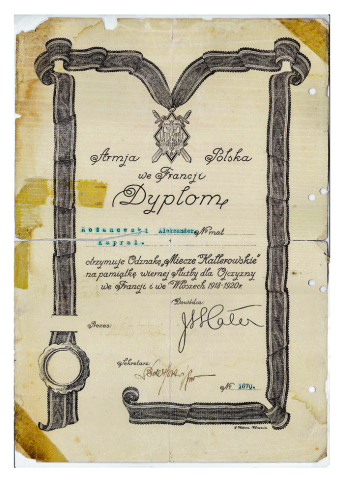 Armja Polska
we Francji
Dyplom
Rożanowski Aleksander № mat
Kapral.
otrzymuje Odznakę „Miecze Hallerowskie"
na pamiątkę wiernej służby dla Ojczyzny
we Francji i we Włoszech 1918-1920r.
Dowódca:
JHaller
Prezes:
Sekretarz:
№ 1670.